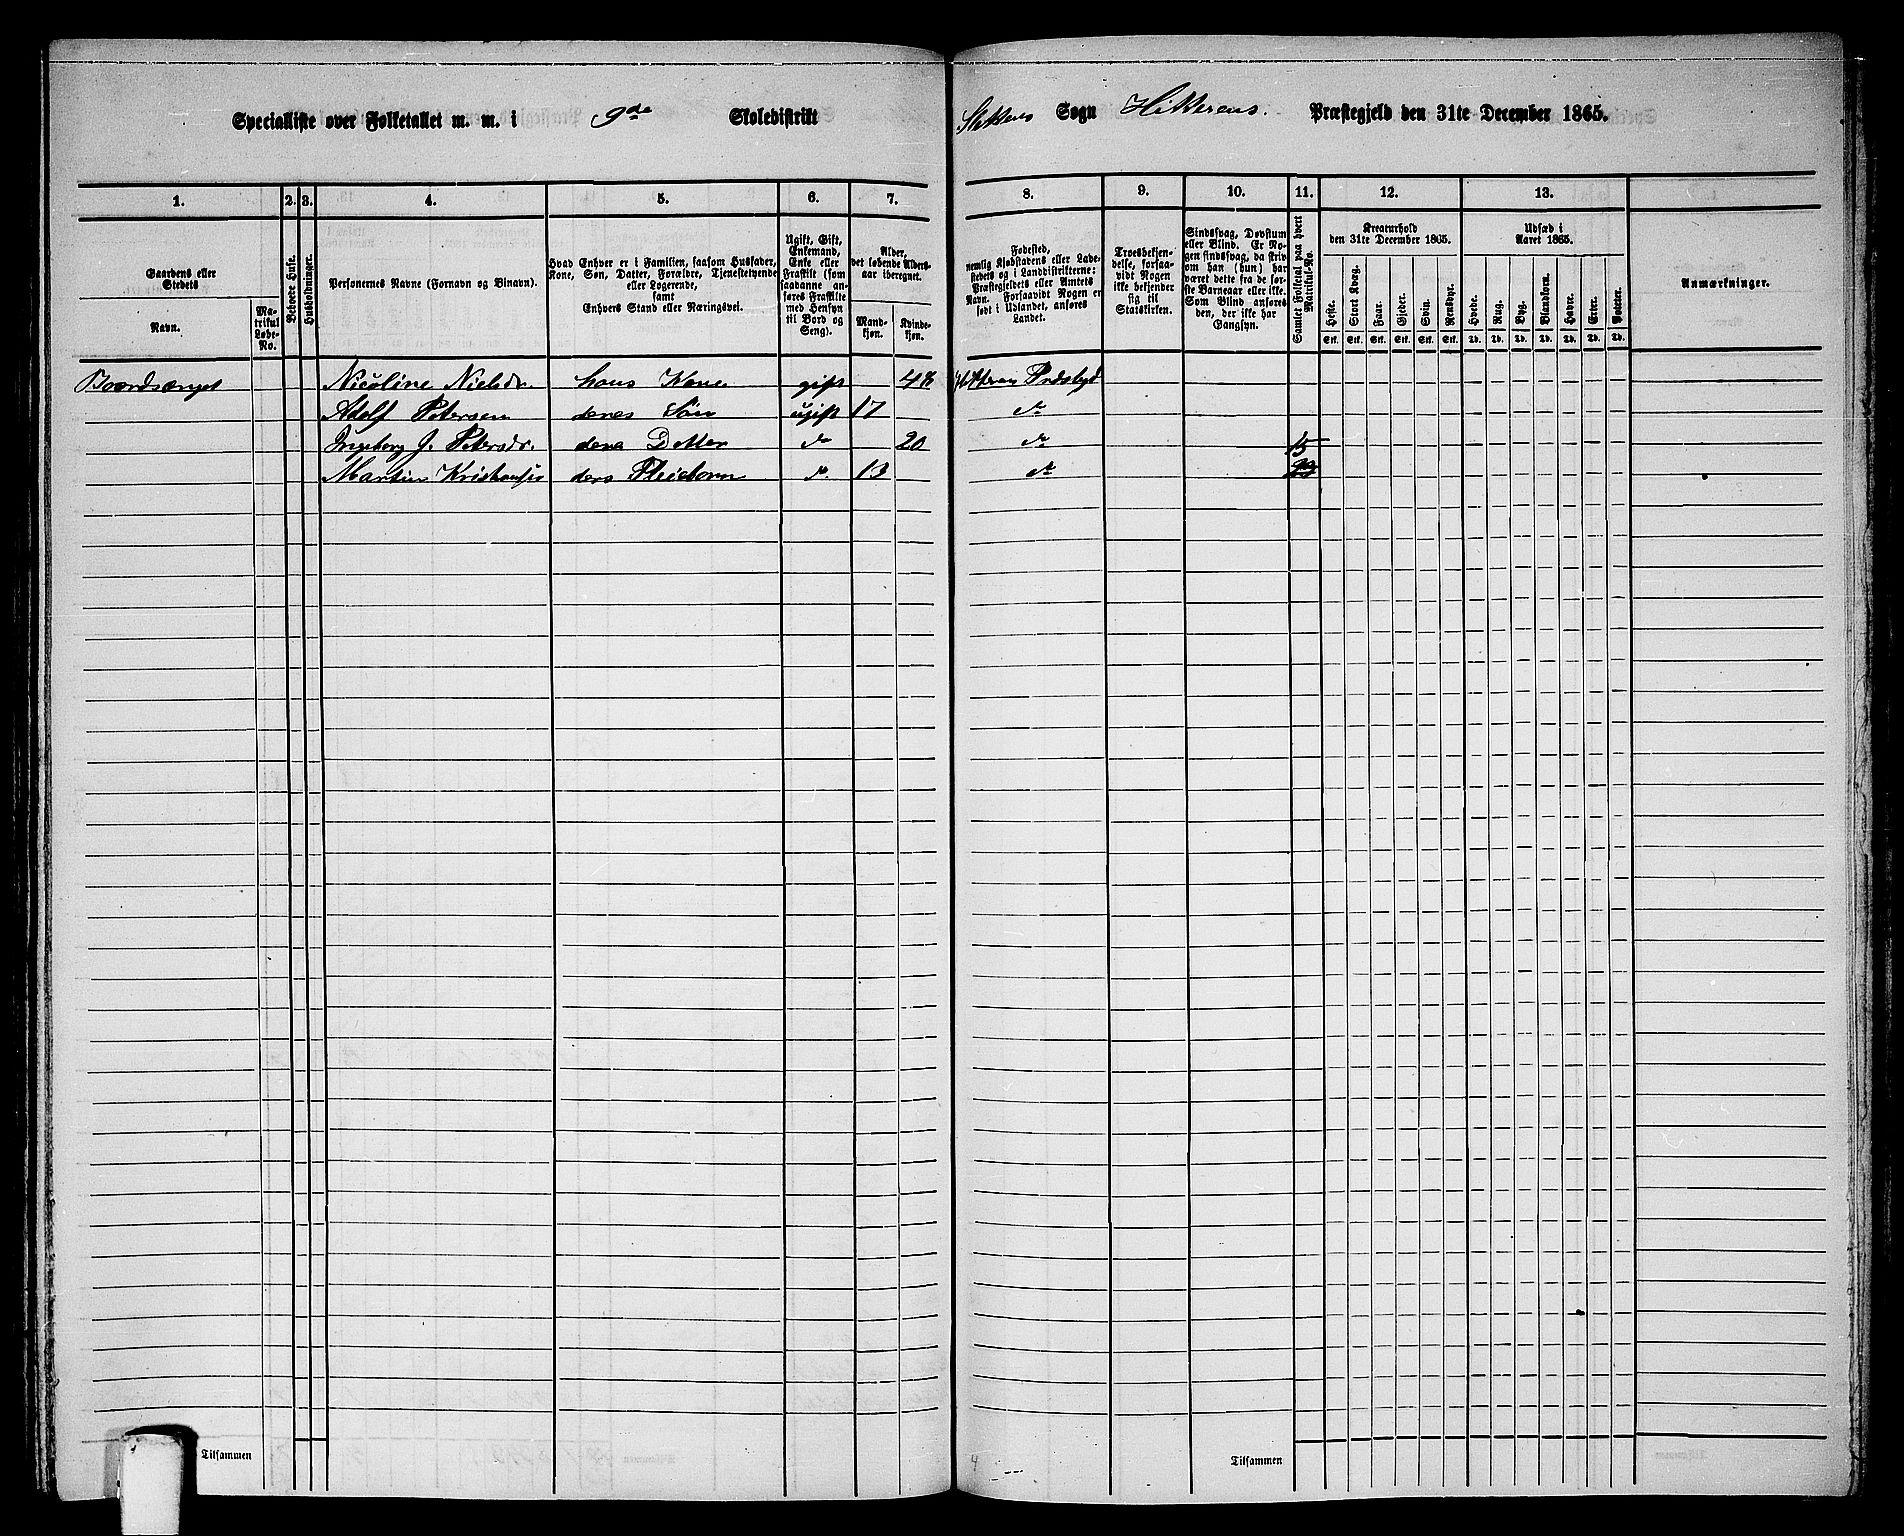 Specialliste over Folketallet m. m. i 9de Skoledistrikt Sogn Hitterens Præstegjeld den 31te December 1865.
1. 2. 3. 4. 5. 6. 7. 8. 9. 10. 11. 12. 13.
Gaardens eller Stedets
Navn.
Matrikul Løbe-No.
Beboede Huse.
Husholdninger.
Personernes Navne (Fornavn og Binavn).
Hvad Enhver er i Familien, saasom Husfader, Kone, Søn, Datter, Forældre, Tjenestetyende eller Logerende,
samt
Enhvers Stand eller Næringsvei.
Ugift, Gift, Enkemand, Enke eller Fraskilt (som saadanne anføres Fraskilte med Hensyn til Bord og Seng).
Alder, det løbende Aldersaar iberegnet.
Mandkjøn.
Kvindekjøn.
Fødested, nemlig Kjøbstadens eller Ladestedets og i Landdistrikterne: Præstegjeldets eller Amtets Navn. Forsaavidt Nogen er født i Udlandet, anføres Landet.
Troesbekjendelse, forsaavidt Nogen ikke bekjender sig til Statskirken.
Sindssvag, Døvstum eller Blind. Er Nogen sindssvag, da skrives om han (hun) har været dette fra de første Barneaar eller ikke. Som Blind anføres den, der ikke har Gangsyn.
Samlet Folketal paa hvert Matrikul-No.
Kreaturhold den 31te December 1865.
Heste. Stort Kvæg. Faar. Gjeder. Svin. Rensdyr.
Stk. Stk. Stk. Stk. Stk. Stk.
Udsæd i Aaret 1865.
Hvede. Rug. Byg. Blandkorn. Havre. Erter. Poteter.
Td. Td. Td. Td. Td. Td. Td.
Anmærkninger.
Nicoline Nielsdr. hans Kone gift Præstgjd
Adolf Petersen deres Søn ugift 17 do
Ingeborg J. Petersdr. deres Datter do 20 do 15
Martin deres Pleiebarn do. 13 do
Tilsammen Tilsammen